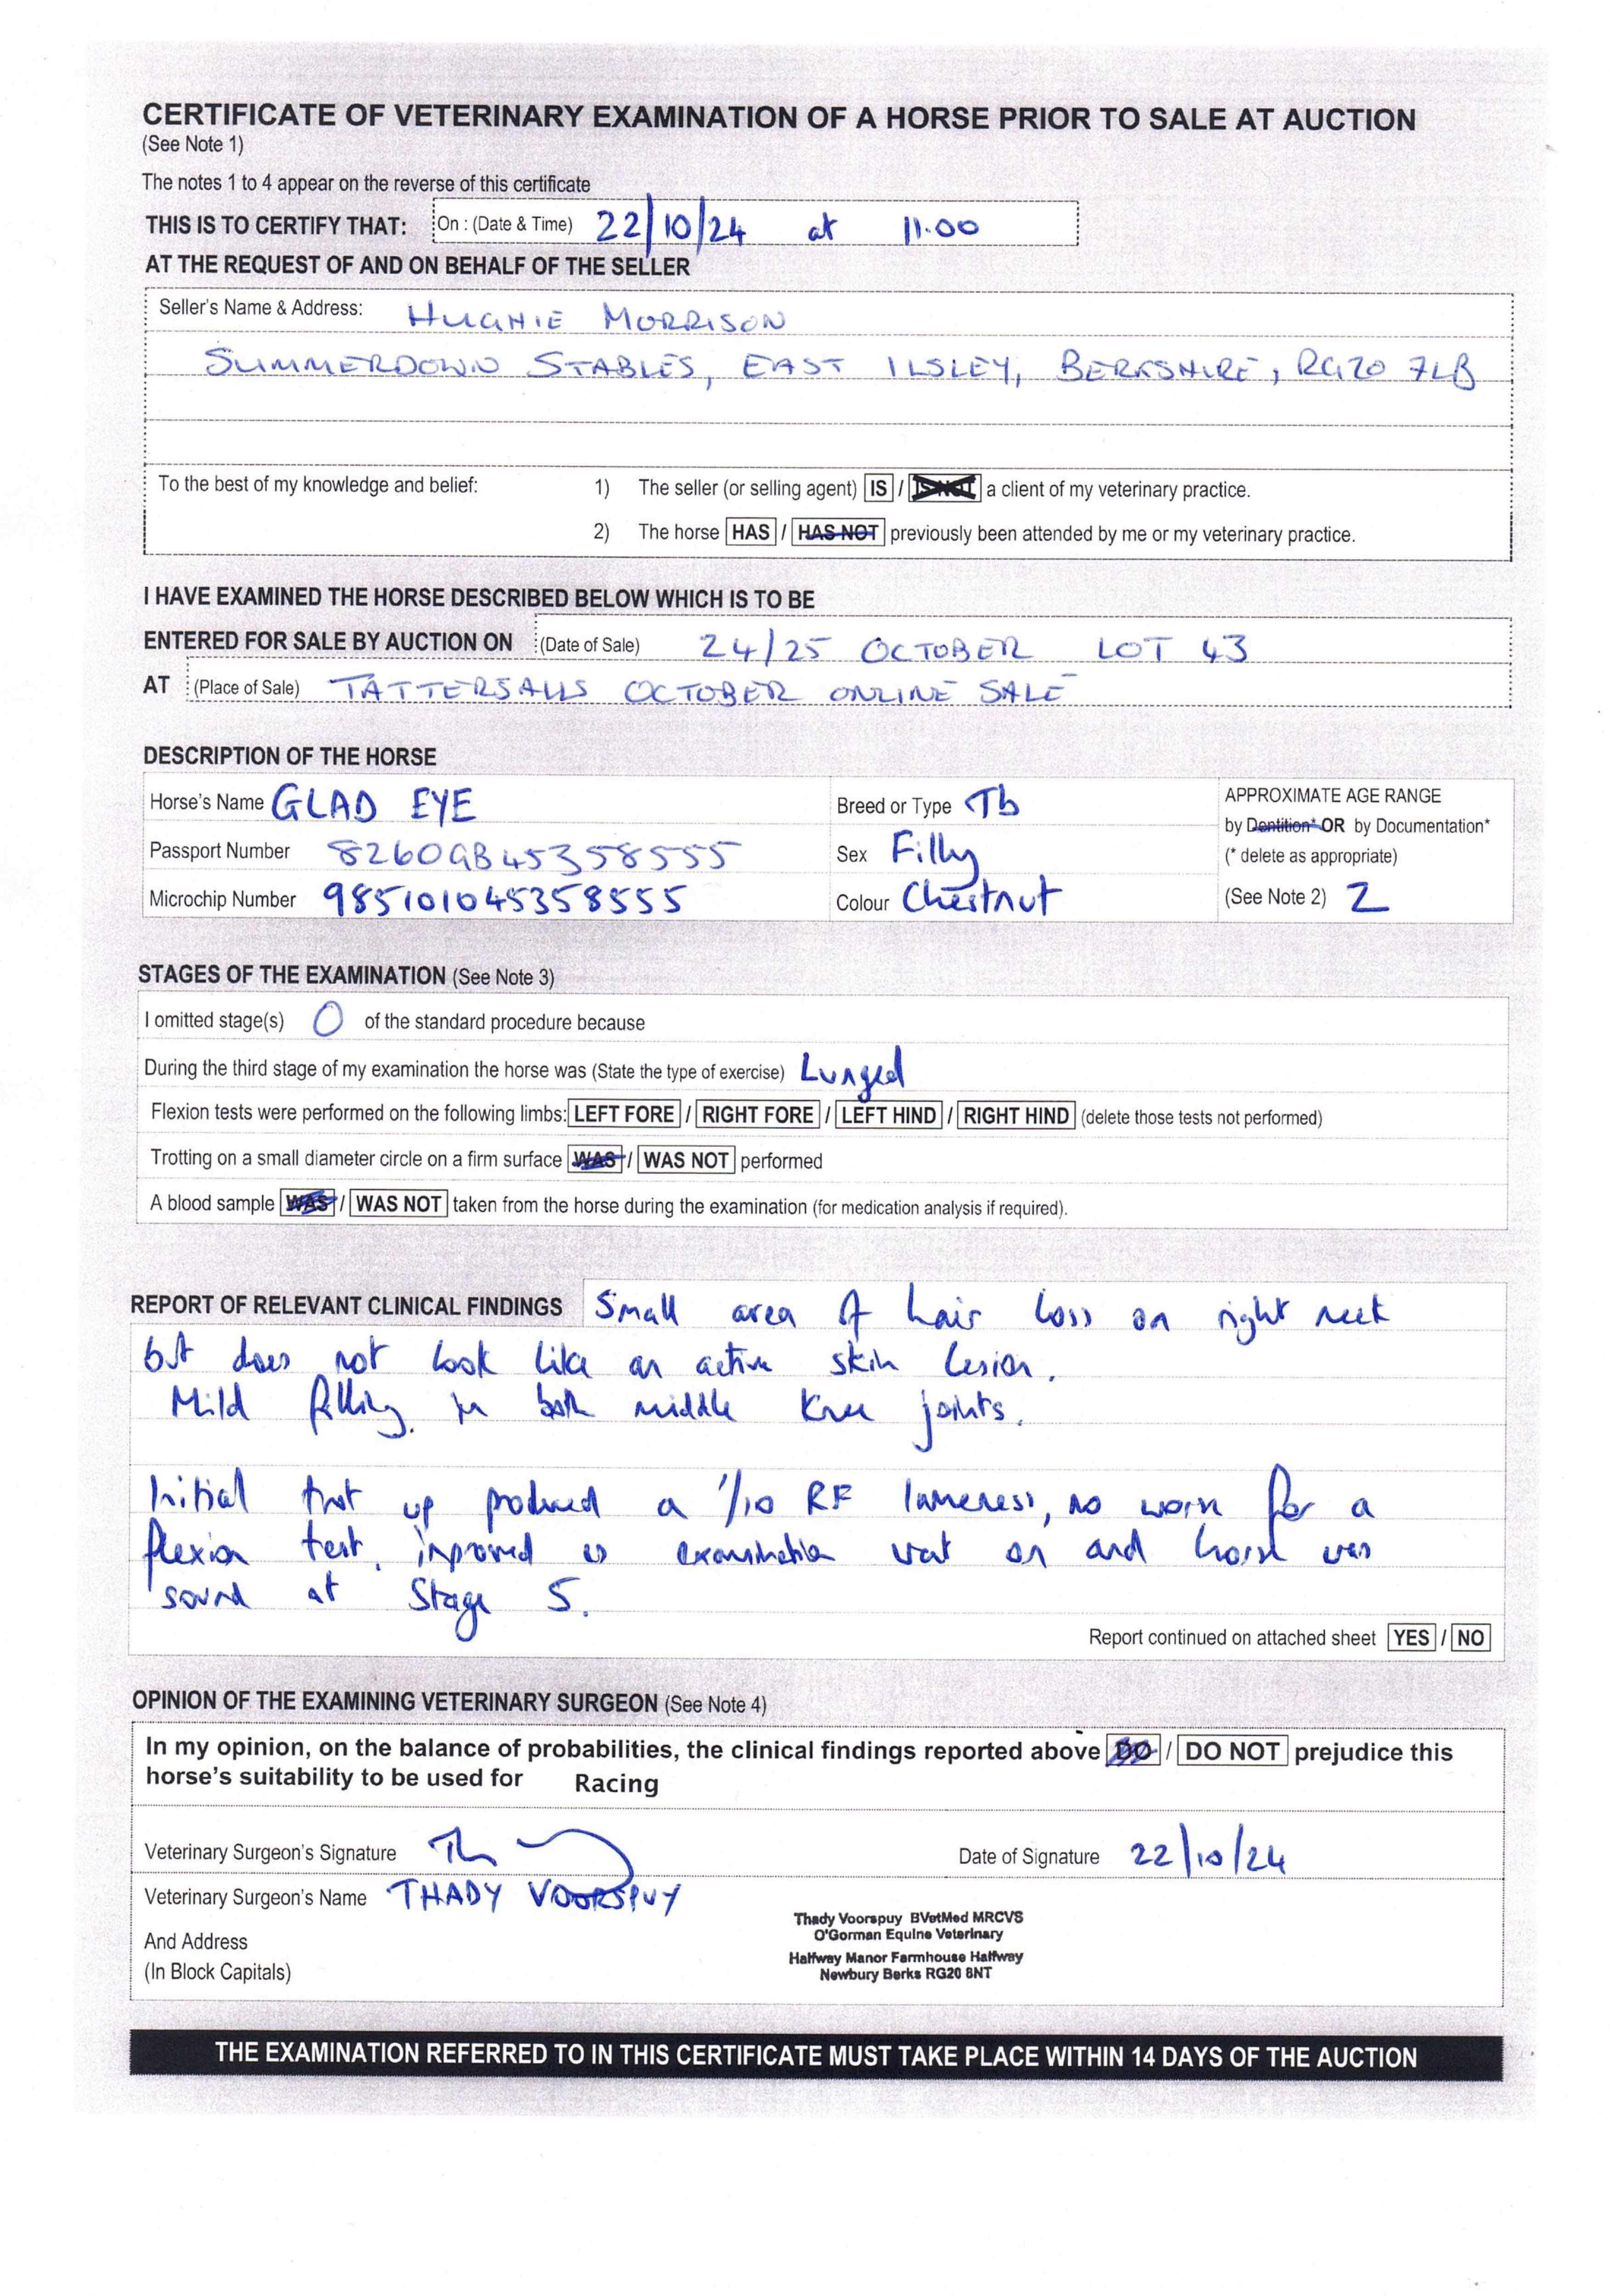 CERTIFICATE OF VETERINARY EXAMINATION OF A HORSE PRIOR TO SALE AT AUCTION
(See Note 1)
The notes 1 to 4 appear on the reverse of this certificate
THIS IS TO CERTIFY THAT: On : (Date & Time) 22/10/24 at 11.00
AT THE REQUEST OF AND ON BEHALF OF THE SELLER
Seller's Name & Address: HUGHIE MORRISON
SUMMERDOWN STABLES, EAST ILSLEY, BERKSHIRE, RG20 7LB
To the best of my knowledge and belief: 1) The seller (or selling agent) IS / IS NOT a client of my veterinary practice.
2) The horse HAS / HAS NOT previously been attended by me or my veterinary practice.
I HAVE EXAMINED THE HORSE DESCRIBED BELOW WHICH IS TO BE
ENTERED FOR SALE BY AUCTION ON (Date of Sale) 24/25 OCTOBER LOT 43
AT (Place of Sale) TATTERSALLS OCTOBER ONLINE SALE
DESCRIPTION OF THE HORSE
Horse's Name GLAD EYE Breed or Type Tb APPROXIMATE AGE RANGE
by Dentition* OR by Documentation*
Passport Number 8260GB45358555 Sex Filly (* delete as appropriate)
Microchip Number 985101045358555 Colour Chestnut (See Note 2) 2
STAGES OF THE EXAMINATION (See Note 3)
I omitted stage(s) 0 of the standard procedure because
During the third stage of my examination the horse was (State the type of exercise) Lunged
Flexion tests were performed on the following limbs: LEFT FORE / RIGHT FORE / LEFT HIND / RIGHT HIND (delete those tests not performed)
Trotting on a small diameter circle on a firm surface WAS / WAS NOT performed
A blood sample WAS / WAS NOT taken from the horse during the examination (for medication analysis if required).
REPORT OF RELEVANT CLINICAL FINDINGS Small area of hair loss on right neck
but does not look like an active skin lesion.
Mild filling in both middle knee joints.
Initial trot up produced a 1/10 RF lameness, no worse for a
flexion test. improved as examination went on and horse was
sound at Stage 5.
Report continued on attached sheet YES / NO
OPINION OF THE EXAMINING VETERINARY SURGEON (See Note 4)
In my opinion, on the balance of probabilities, the clinical findings reported above DO / DO NOT prejudice this
horse's suitability to be used for Racing
Veterinary Surgeon's Signature Date of Signature 22/10/24
Veterinary Surgeon's Name THADY VOORSPUY
And Address
(In Block Capitals)
Thady Voorspuy BVetMed MRCVS
O'Gorman Equine Veterinary
Halfway Manor Farmhouse Halfway
Newbury Berks RG20 8NT
THE EXAMINATION REFERRED TO IN THIS CERTIFICATE MUST TAKE PLACE WITHIN 14 DAYS OF THE AUCTION